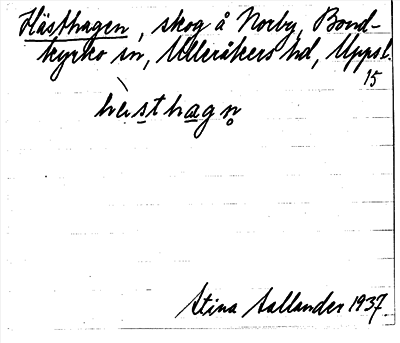 Hästhagen, skog å Norby, Bond-
kyrko sn, Ulleråkers hd, Uppsl.
15
hèsthagn̥
Stina Sallander 1937.